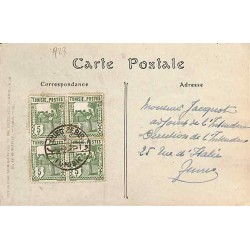 1923
Carte Postale
Correspondance
Adresse
TUNISIE.POSTES TUNISIE.POSTES
5 5
TUNISIE.POSTES TUNISIE.POSTES
5 5
Monsieur Jacquot
adjoint de l'Intendance
Direction de l'Intendance
25 Rue d'Italie
Tunis